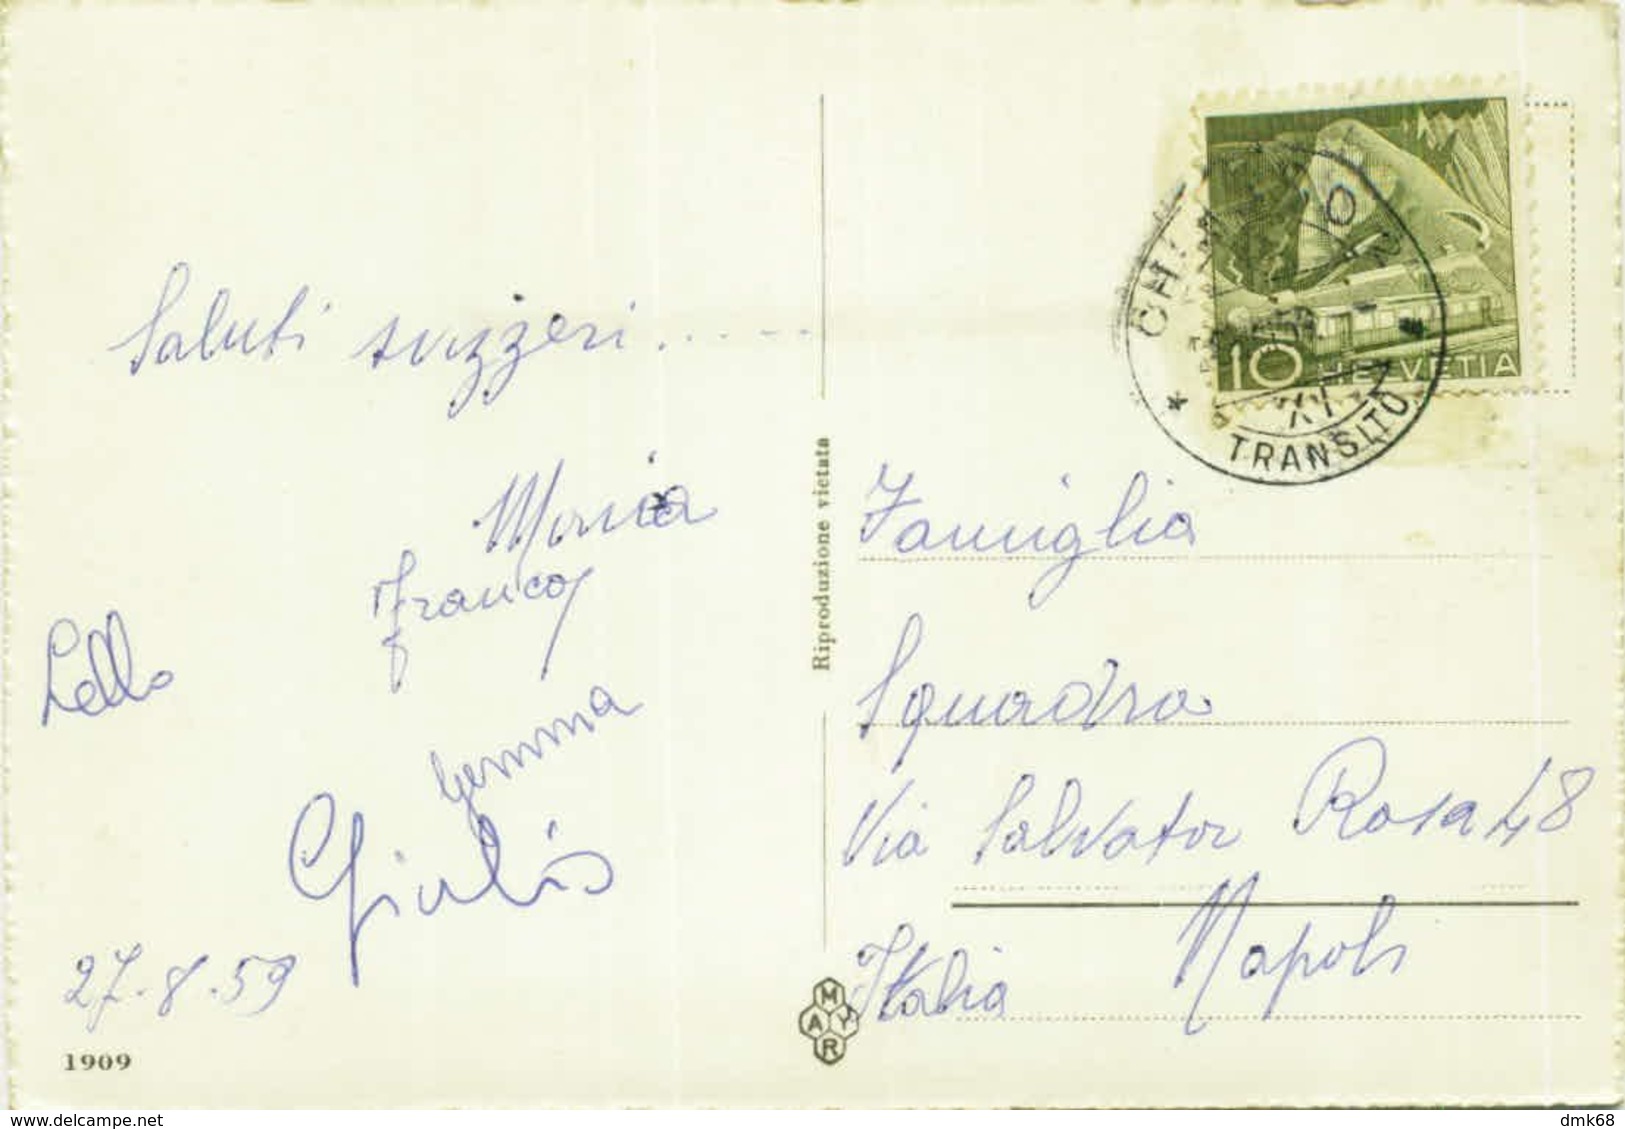 Saluti svizzeri.....
Maria
Franco
Lello
Gemma
Giulio
27.8.59
1909
Riproduzione vietata
MAYR
10 HELVETIA
TRANSITO
Famiglia
Squadra
Via Salvator Rosa 48
Napoli
Italia
delcampe.net
dmk68